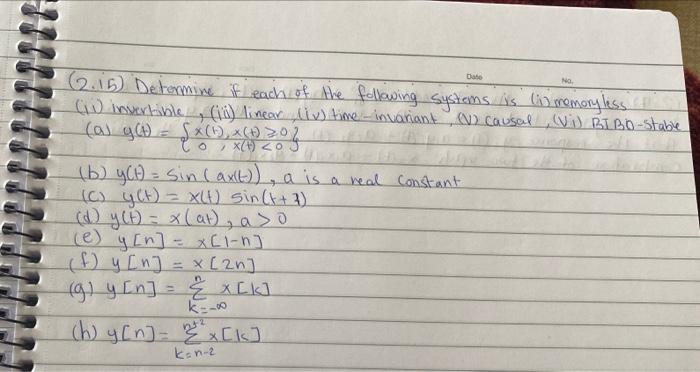 Date No.
(2.15) Determine if each of the following systems is (i) memoryless
(ii) invertible, (iii) linear, (iv) time-invariant, (v) causal, (vi) BIBO-stable
(a) y(t) = { x(t), x(t) ≥ 0 }
{ 0 , x(t) < 0 }
(b) y(t) = sin(ax(t)), a is a real constant
(c) y(t) = x(t) sin(t+1)
(d) y(t) = x(at), a > 0
(e) y[n] = x[1-n]
(f) y[n] = x[2n]
(g) y[n] = n Σ k=-∞ x[k]
(h) y[n] = n+2 Σ k=n-2 x[k]